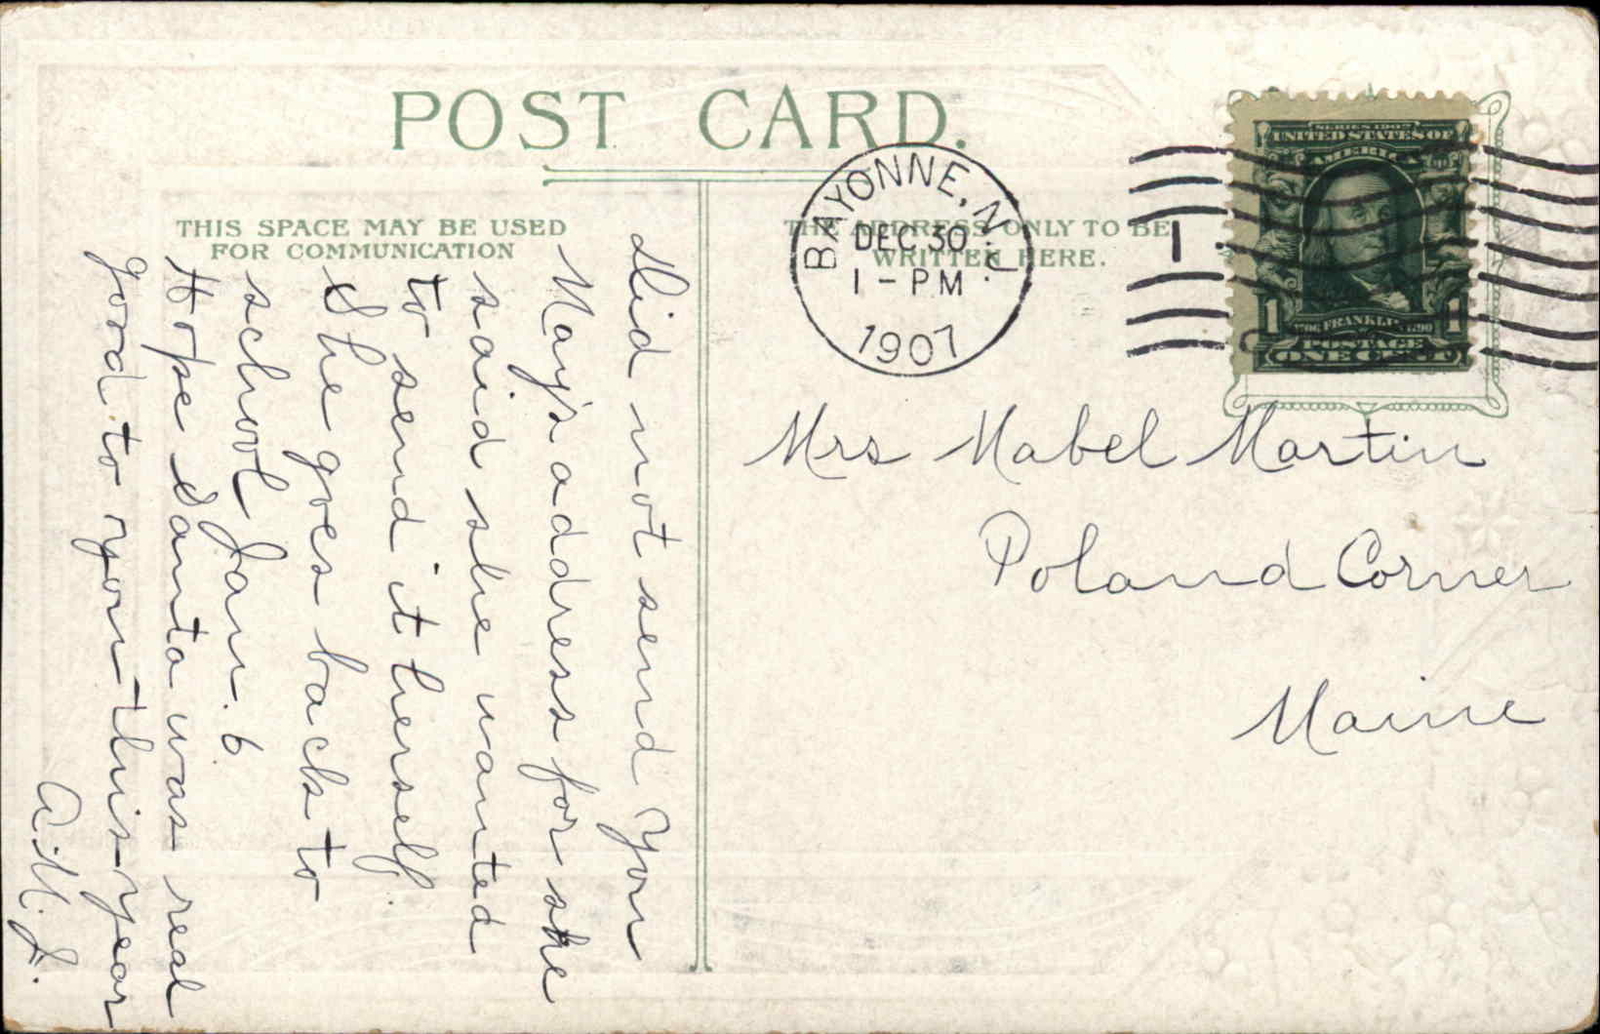 POST CARD.
THIS SPACE MAY BE USED
FOR COMMUNICATION
THE ADDRESS ONLY TO BE
WRITTEN HERE.
BAYONNE, N.J.
DEC 30
1 - PM
1907
1
SERIES 1902
UNITED STATES OF
AMERICA
1706 FRANKLIN 1790
1 1
POSTAGE
ONE CENT
did not send you
May's address for she
said she wanted
to send it herself.
She goes back to
school Jan. 6
Hope Santa was real
good to you this year
A. M. J.
Mrs Mabel Martin
Poland Corner
Maine